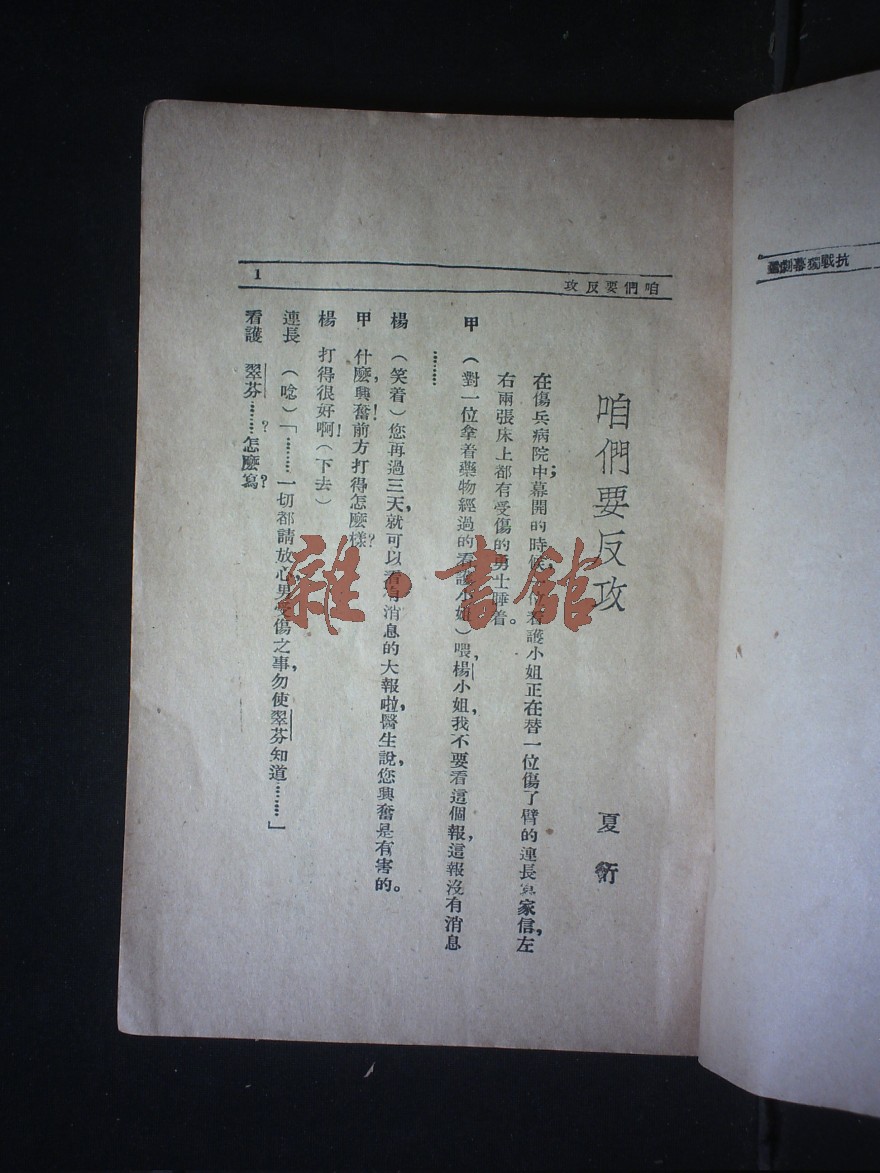 抗戰獨幕劇選
咱們要反攻
1
咱們要反攻
夏衍
在傷兵病院中；幕開的時候，一位看護小姐正在替一位傷了臂的連長寫家信，左
右兩張床上都有受傷的勇士睡着。
甲 （對一位拿着藥物經過的看護小姐）喂，楊小姐，我不要看這個報，這報沒有消息
………
楊 （笑着）您再過三天，就可以看有消息的大報啦，醫生說，您興奮是有害的。
甲 什麼，興奮！前方打得怎麼樣？
楊 打得很好啊！（下去）
連長 （唸）「………一切都請放心，男受傷之事，勿使翠芬知道………」
看護 翠芬………？怎麼寫？
雜·書館